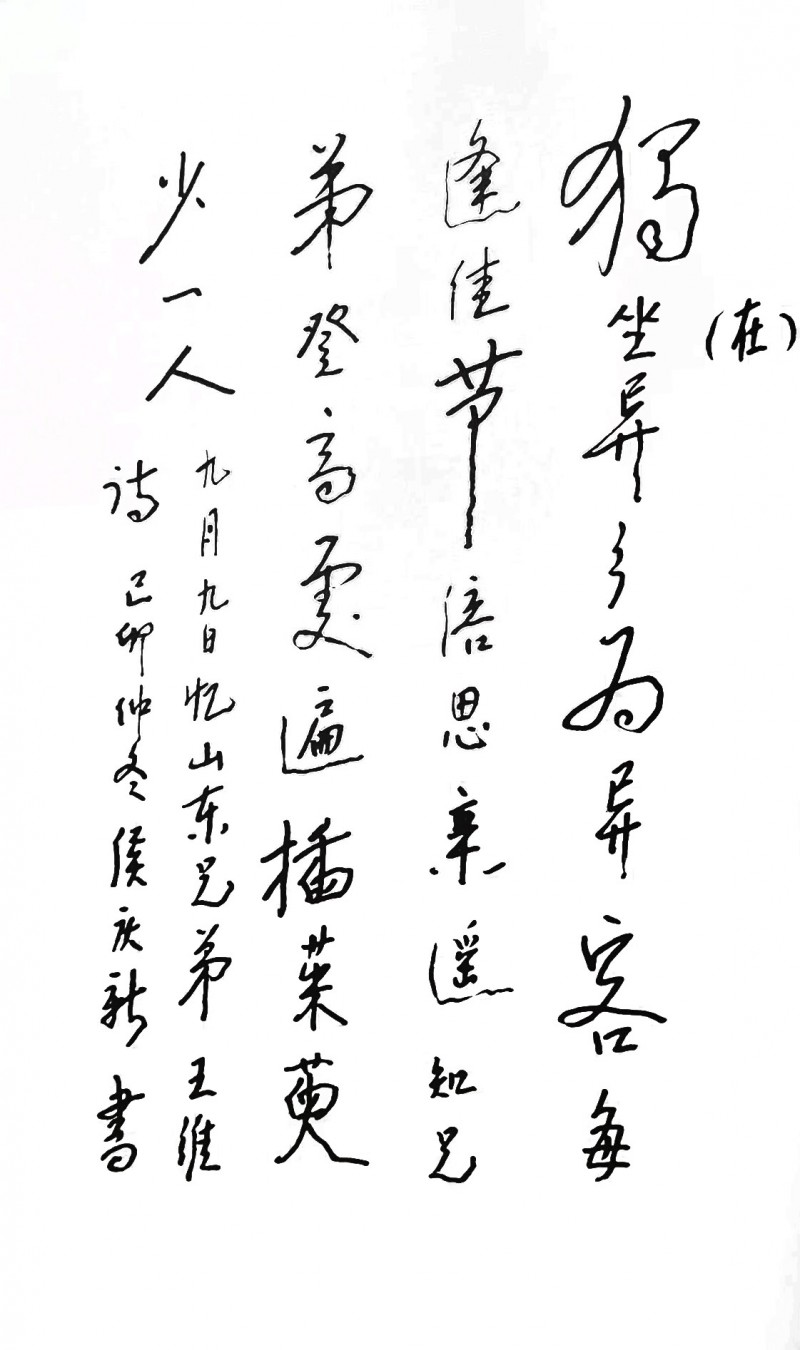 (在)
獨坐异乡为异客每
逢佳节倍思亲遥知兄
弟登高處遍插茱萸
少一人
九月九日忆山东兄弟王维
诗己卯仲冬侯庆新書